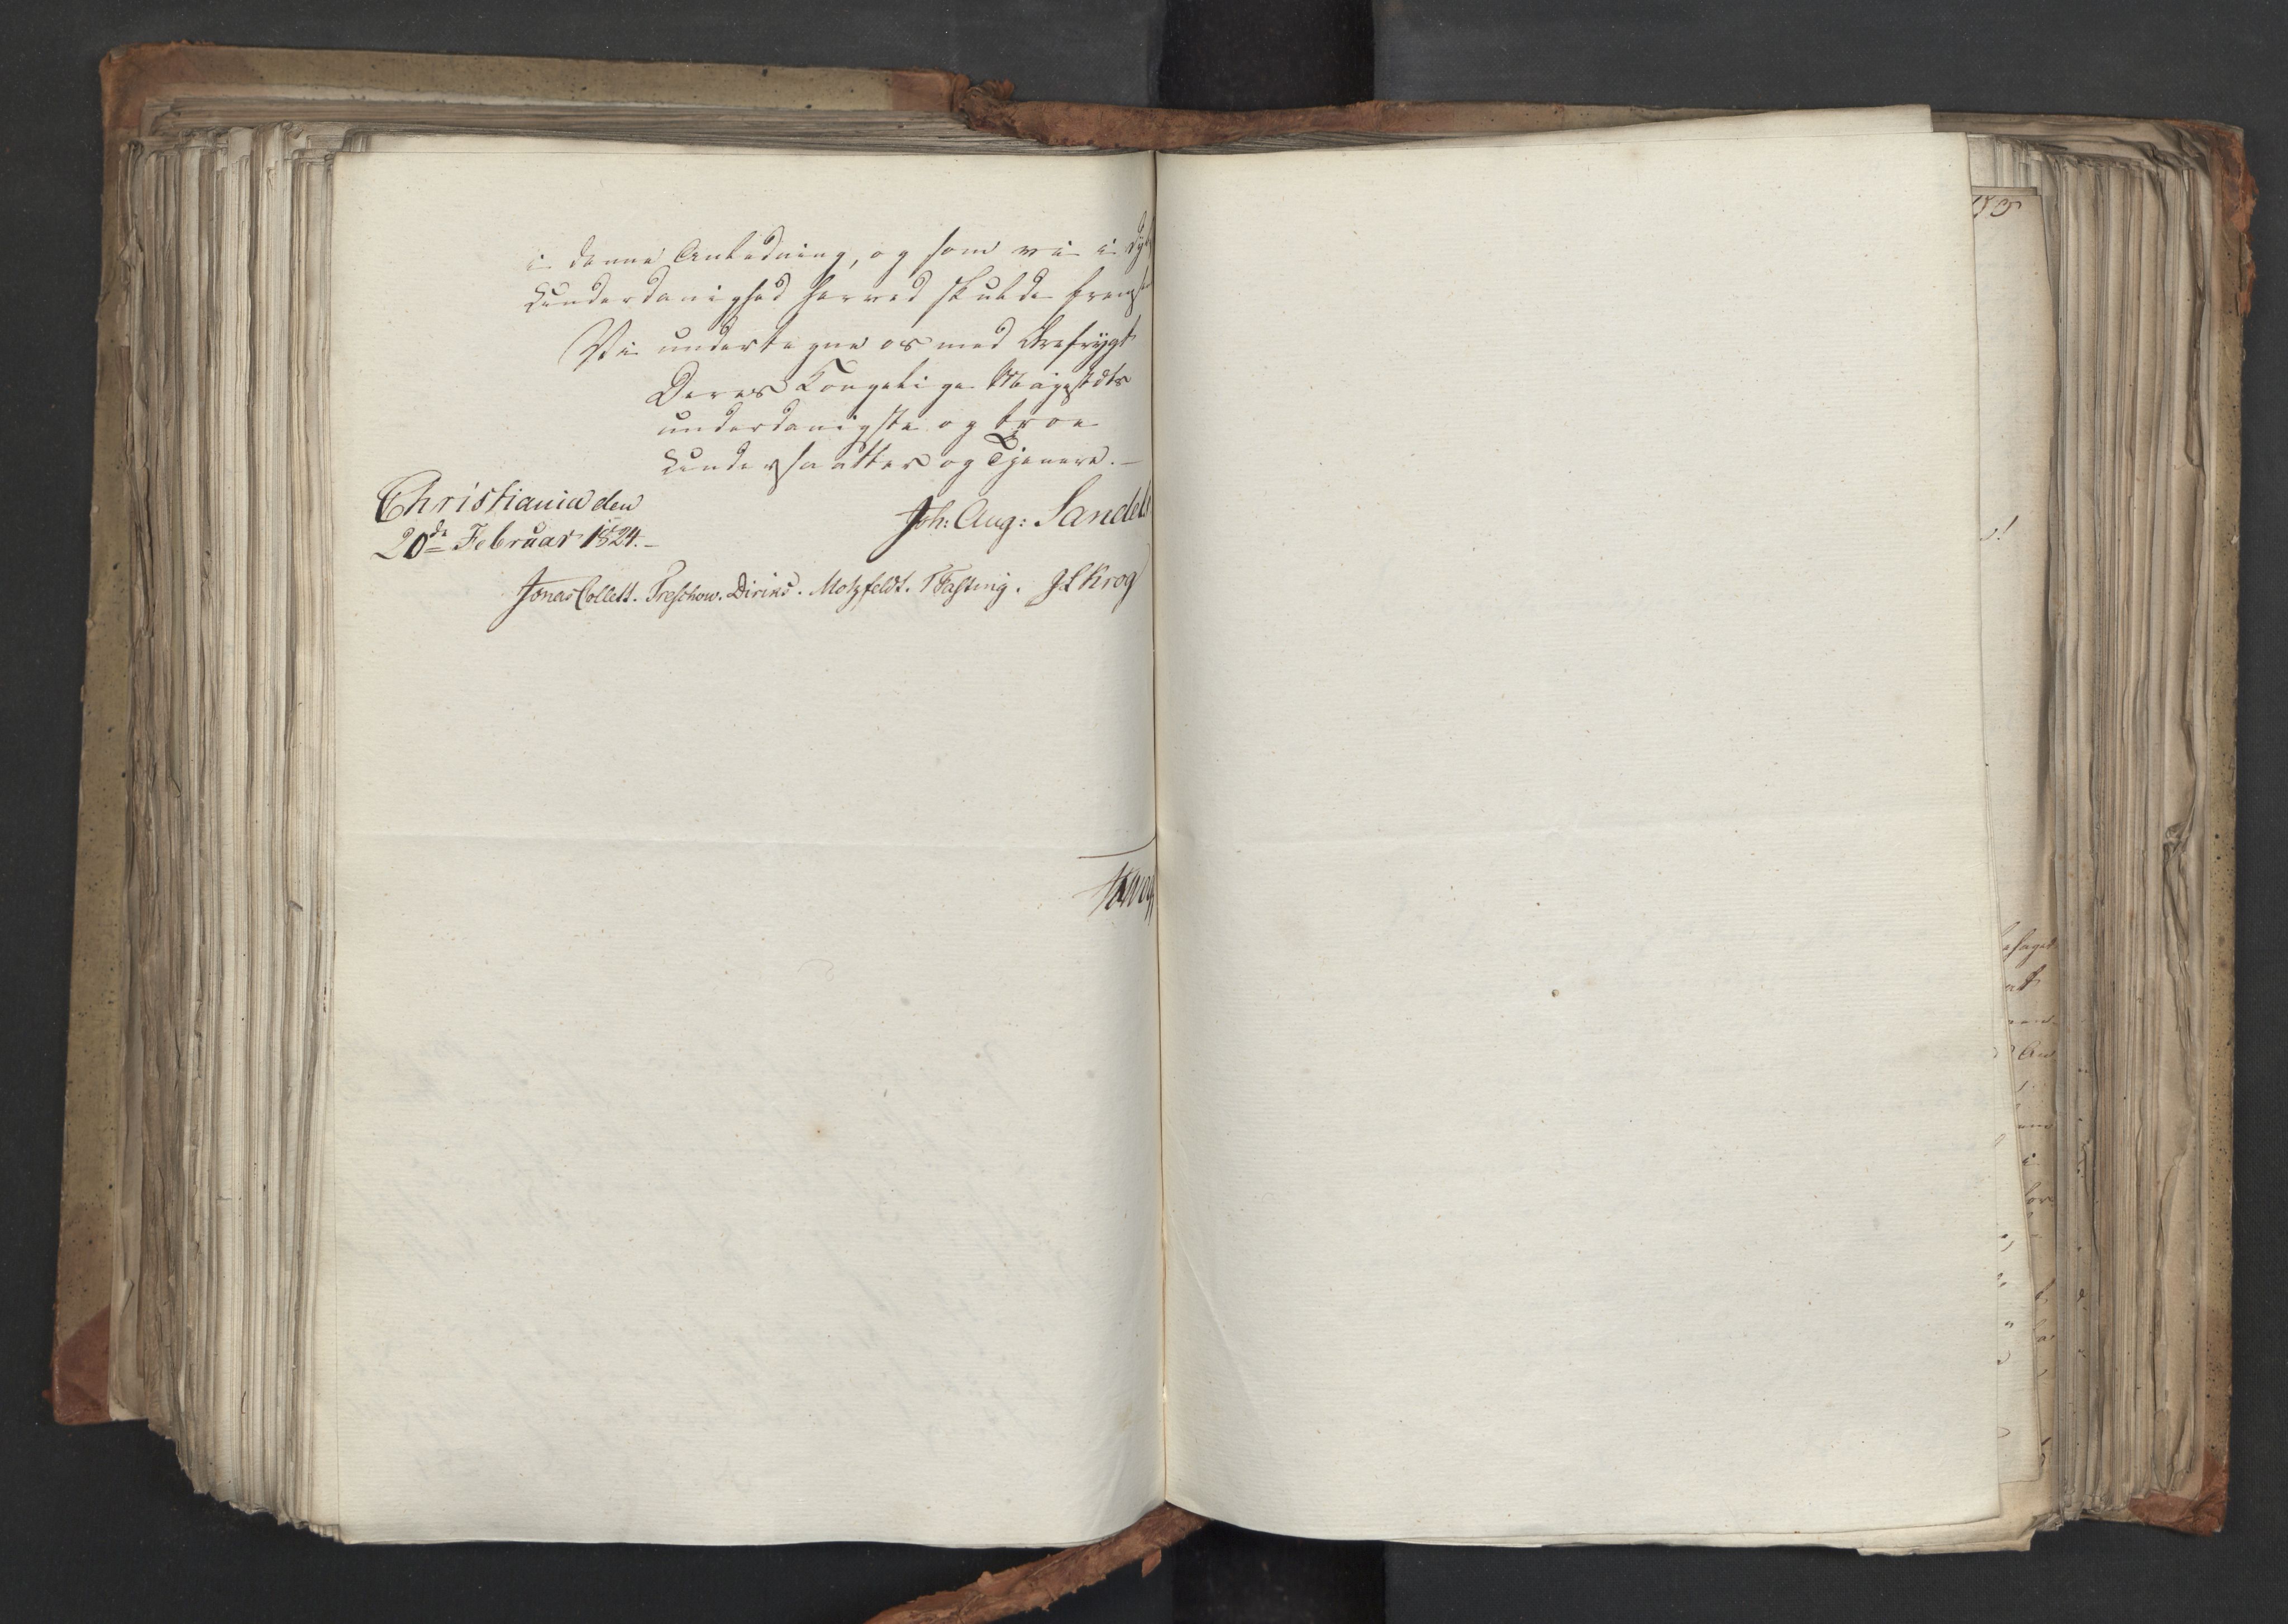 i denne Anledning, og som vi i
Underdanighed herved skulde
Vi undertegne os med Ærefrygt
Deres Kongelige Majestæts
underdanigste og troe
Undersaatter og Tjenere.–
Christiania den
20de Februar 1824.–
Joh: Aug: Sandels
Jonas Collett. Treschow. Diriks. Motzfeldt. T Fasting. J L Krog
at